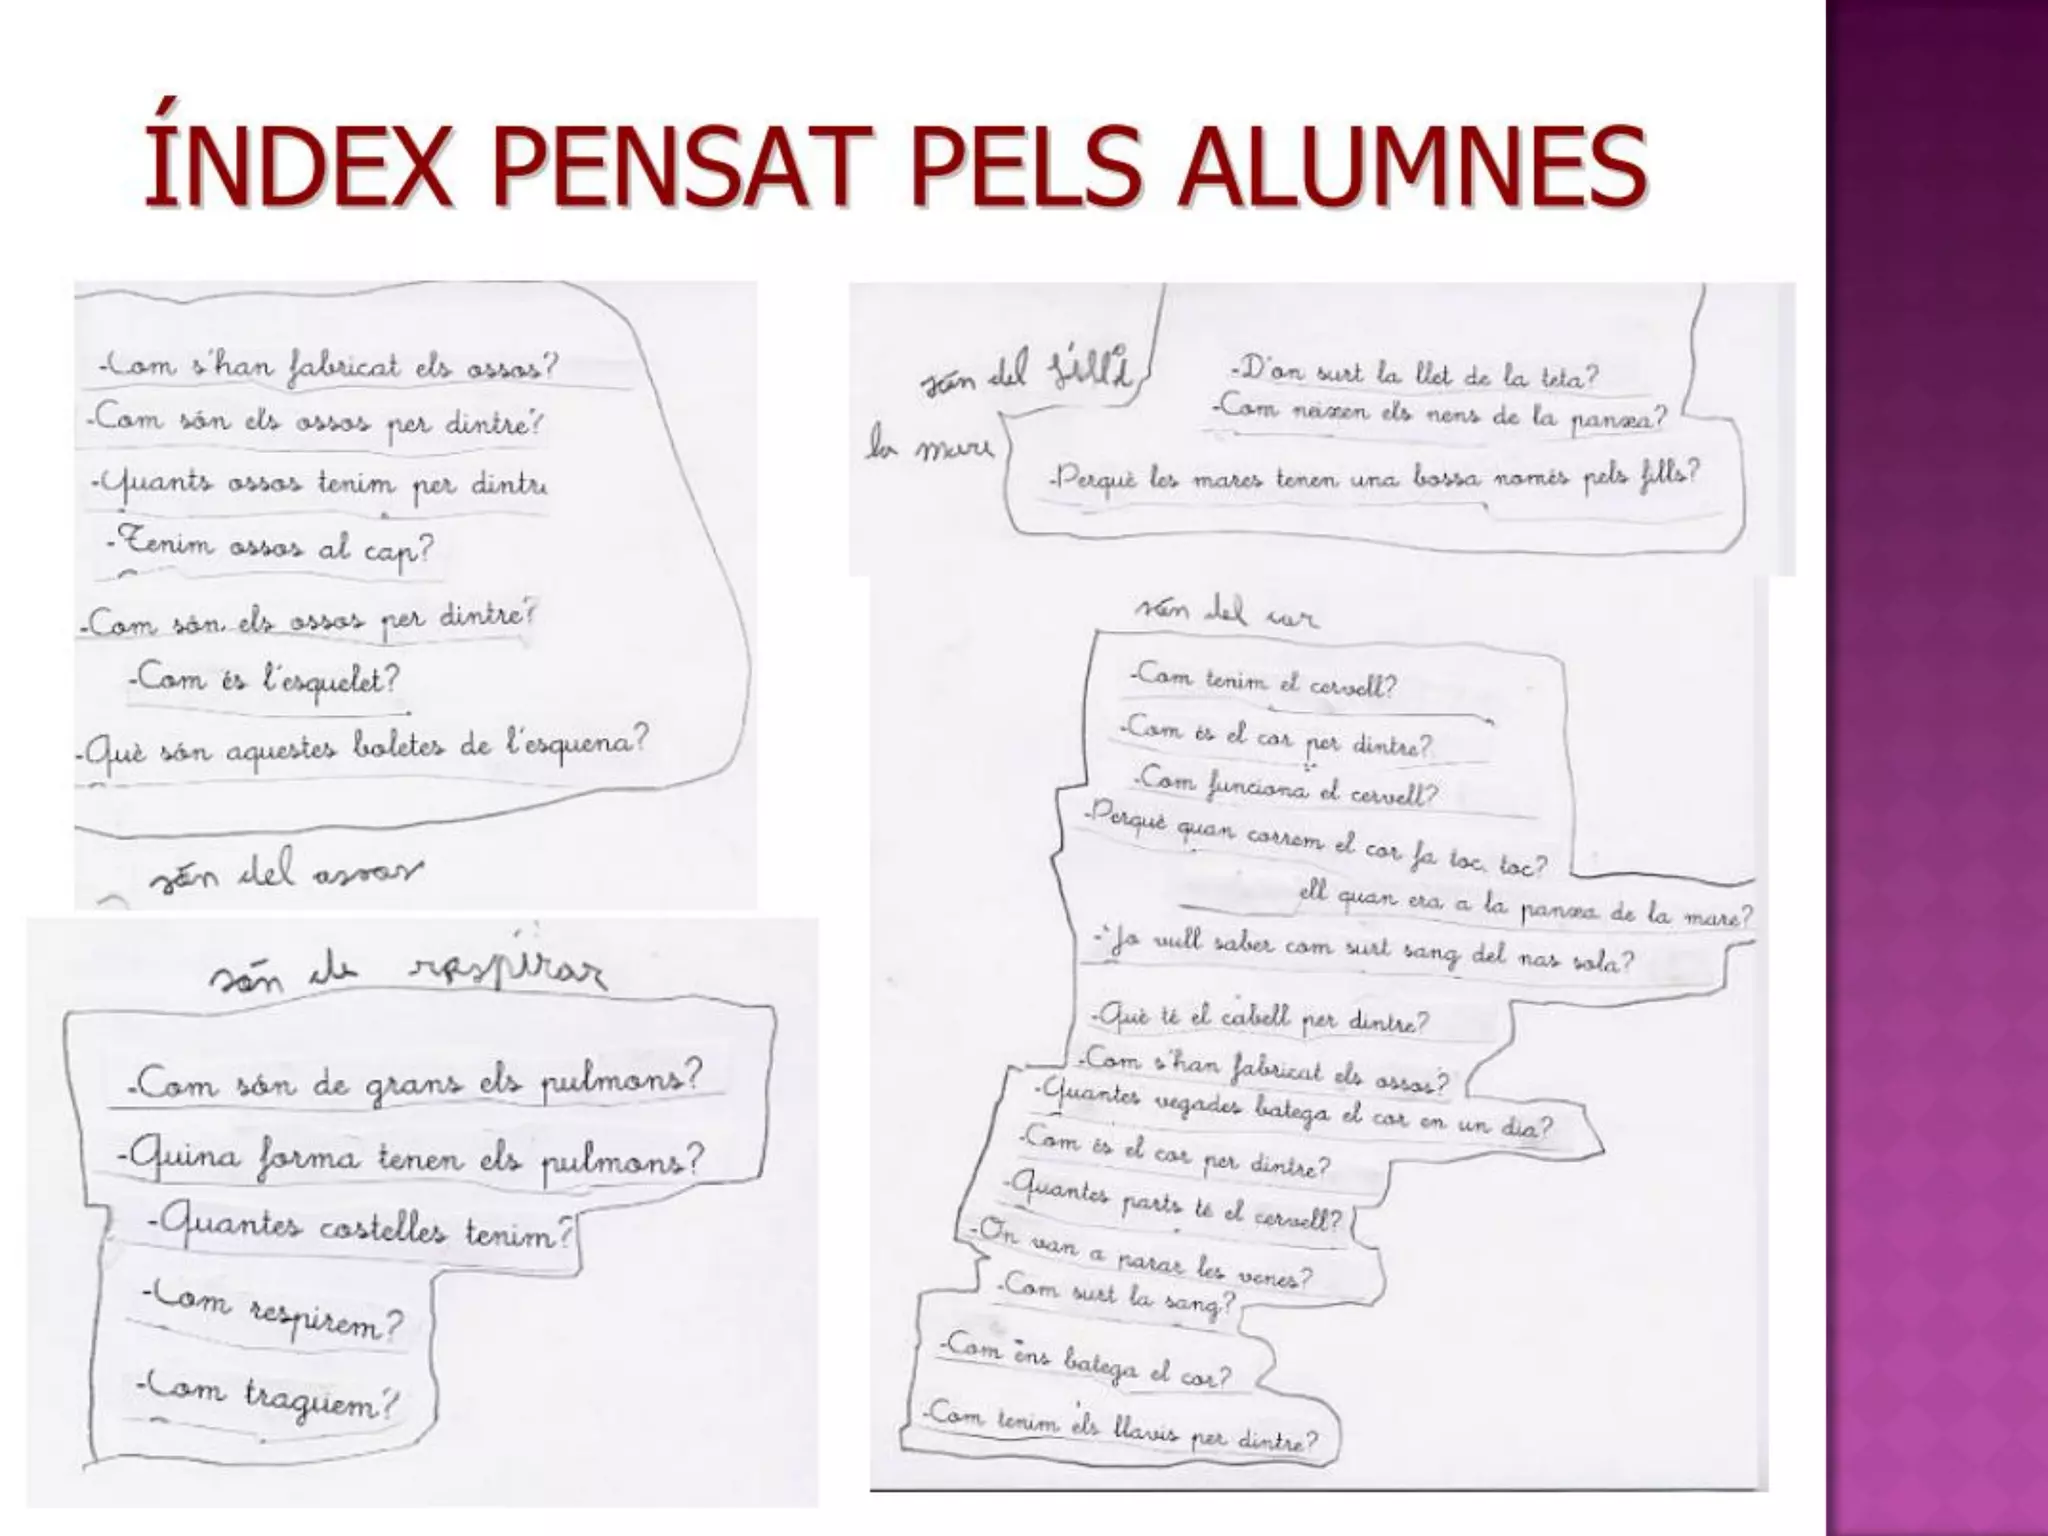 ÍNDEX PENSAT PELS ALUMNES
-Com s'han fabricat els ossos?
-Com són els ossos per dintre?
-Quants ossos tenim per dintre
-Tenim ossos al cap?
-Com són els ossos per dintre?
-Com és l'esquelet?
-Què són aquestes boletes de l'esquena?
són del ossos
són de respirar
-Com són de grans els pulmons?
-Quina forma tenen els pulmons?
-Quantes costelles tenim?
-Com respirem?
-Com traguem?
són del fill i
la mare
-D'on surt la llet de la teta?
-Com neixen els nens de la panxa?
-Perquè les mares tenen una bossa només pels fills?
són del cor
-Com tenim el cervell?
-Com és el cor per dintre?
-Com funciona el cervell?
-Perquè quan correm el cor fa toc, toc?
ell quan era a la panxa de la mare?
-Jo vull saber com surt sang del nas sola?
-Què té el cabell per dintre?
-Com s'han fabricat els ossos?
-Quantes vegades batega el cor en un dia?
-Com és el cor per dintre?
-Quantes parts té el cervell?
-On van a parar les venes?
-Com surt la sang?
-Com ens batega el cor?
-Com tenim els llavis per dintre?